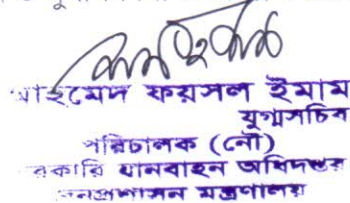 আহমেদ ফয়সল ইমাম
যুগ্মসচিব
পরিচালক (নৌ)
সরকারি যানবাহন অধিদপ্তর
জনপ্রশাসন মন্ত্রণালয়